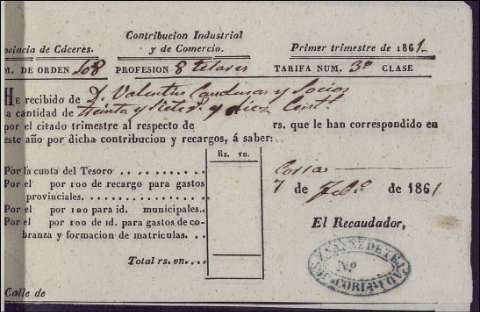 Provincia de Cáceres.
Contribucion Industrial
y de Comercio.
Primer trimestre de 1861.
M. DE ORDEN 108 PROFESION 8 telares TARIFA NUM. 3ª CLASE
HE recibido de D. Valentin y Socios
la cantidad de treinta y siete rs. y diez cents.
por el citado trimestre al respecto de rs. que le han correspondido en
este año por dicha contribucion y recargos, á saber:
Rs. vn.
Por la cuota del Tesoro
Por el por 100 de recargo para gastos
provinciales.
Por el por 100 para id. municipales.
Por el por 100 de id. para gastos de co-
branza y formacion de matrículas.
Total rs. vn.
Coria
7 de de 1861
El Recaudador,
Nº
CORIA
Calle de